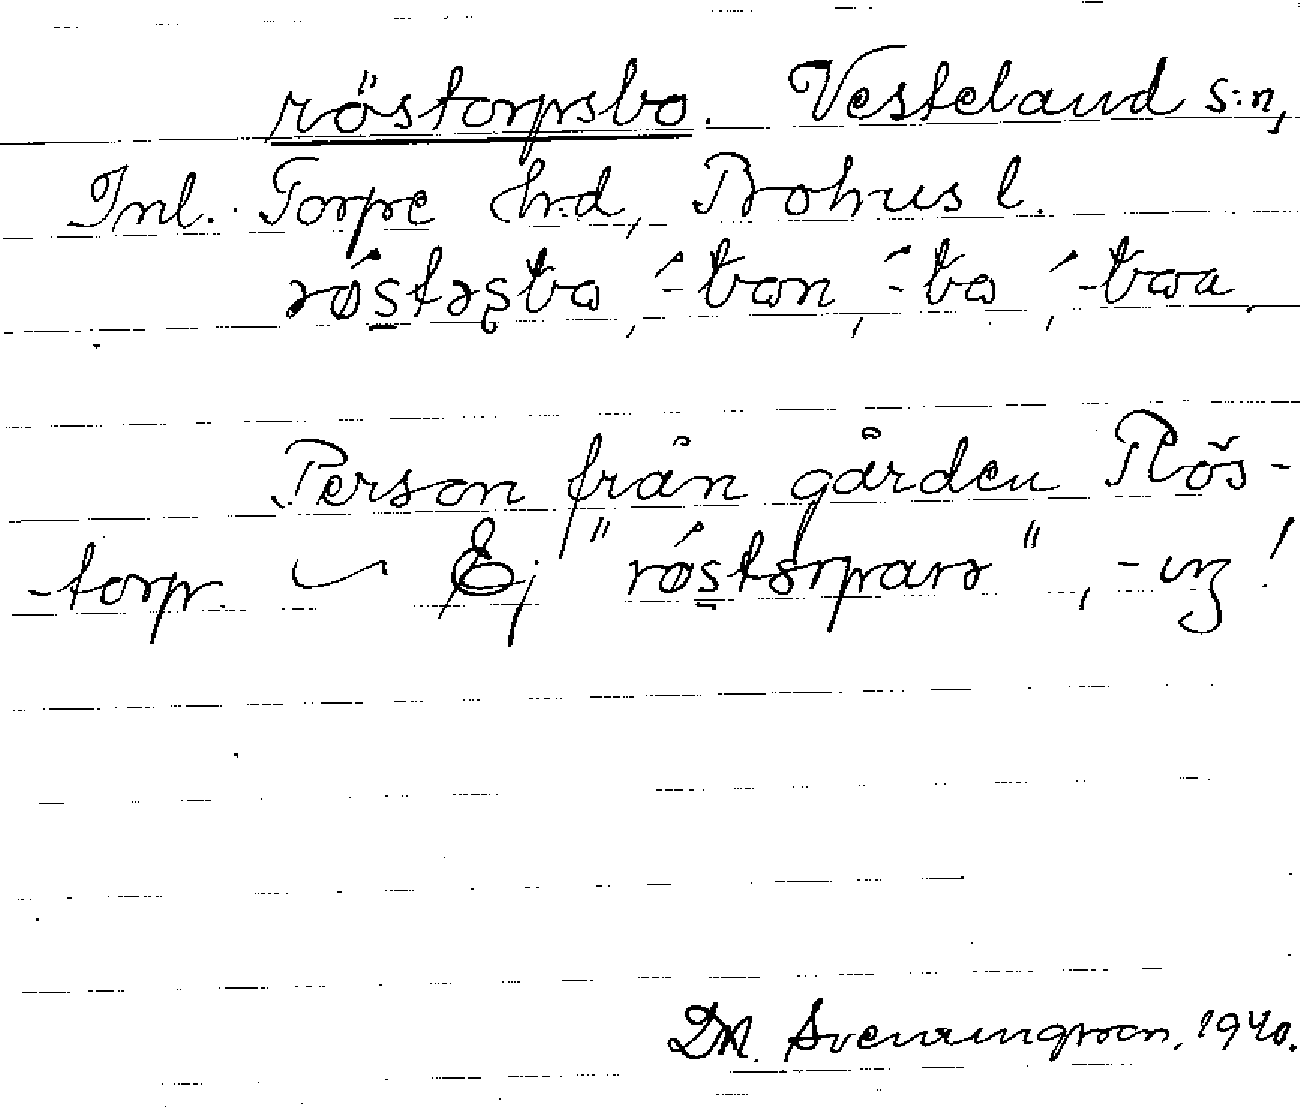 röstorpsbo. Vesteland s:n,
Inl. Torpe h:d, Bohus l.
røstəsbo, ́-bon, ́-bo, ́-boa.
Person från gården Rös-
-torp. ~ Ej "røstərparə", -ɪŋ!
DA. Svenningson. 1940.